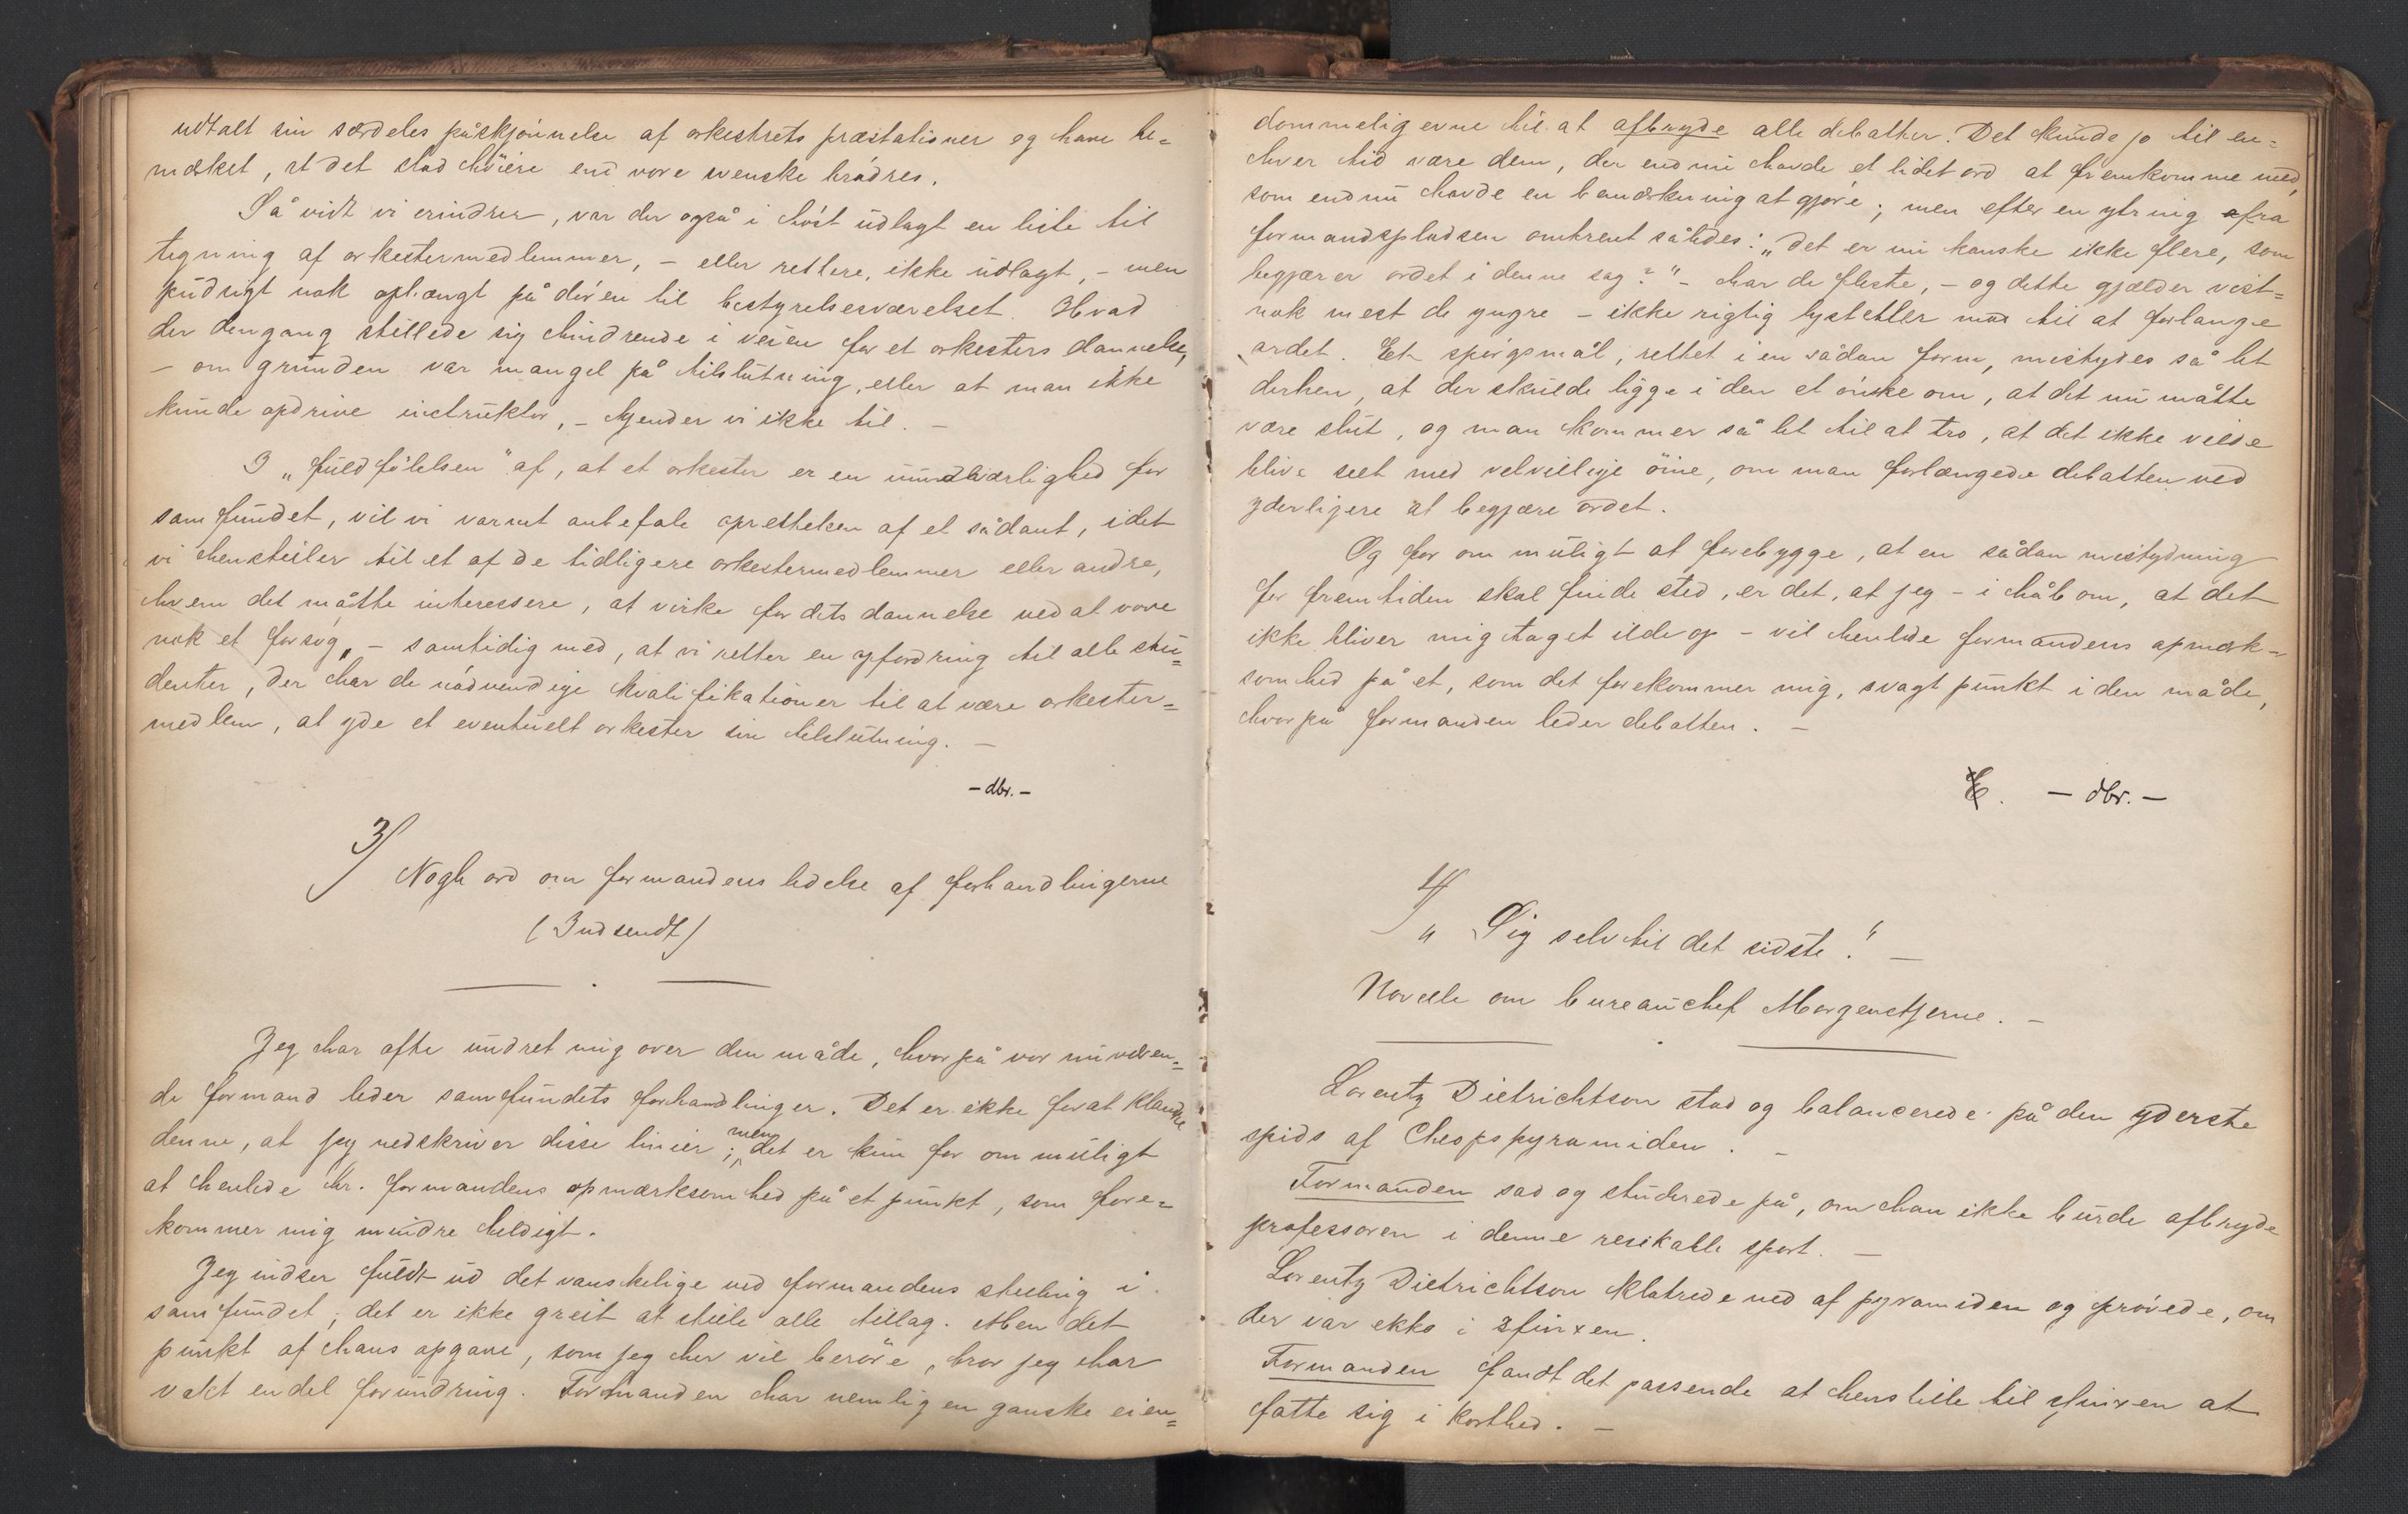 udtalt sin særdeles påskjønnelse af orkestrets præstationer og have be=
mærket, at det stod høiere end vore svenske brødres.
Så vidt vi erindrer, var der også i høst udlagt en liste til
tegning af orkestermedlemmer, – eller rettere, ikke udlagt, – men
pudsigt nok ophængt på døren til bestyrelsesværelset. Hvad
der dengang stillede sig hindrende i veien for et orkesters dannelse,
– om grunden var mangel på tilslutning, eller at man ikke
kunde opdrive instruktør, – kjender vi ikke til. –
I „fuldfølelsen" af, at et orkester er en uundværlighed for
samfundet, vil vi varmt anbefale oprettelsen af et sådant, idet
vi henstiller til et af de tidligere orkestermedlemmer eller andre,
hvem det måtte interessere, at virke for dets dannelse ved at vove
nok et forsøg, – samtidig med, at vi retter en opfordring til alle stu=
denter, der har de nødvendige kvalifikationer til at være orkester=
medlem, at yde et eventuelt orkester sin tilslutning. –
– dbr. –
3/ Nogle ord om formandens ledelse af forhandlingerne
(Indsendt)
Jeg har ofte undret mig over den måde, hvorpå vor nuværen=
de formand leder samfundets forhandlinger. Det er ikke for at klandre
denne, at jeg nedskriver disse linier; men det er kun for om muligt
at henlede hr. formandens opmærksomhed på et punkt, som fore=
kommer mig mindre heldigt.
Jeg indser fuldt ud det vanskelige ved formandens stilling i
samfundet; det er ikke greit at stille alle tillag. Men det
punkt af hans opgave, som jeg her vil berøre, hvor jeg har
vakt endel forundring. Formanden har nemlig en ganske eien=
dommelig evne til at afbryde alle debatter. Det kunde jo til en=
hver tid være dem, der endnu havde et lidet ord at fremkomme med,
som endnu havde en bemærkning at gjøre; men efter en ytring fra
formandspladsen omtrent således: „det er nu kanske ikke flere, som
begjærer ordet i denne sag?" – har de fleste, – og dette gjælder vist=
nok mest de yngre – ikke rigtig lyst eller mod til at forlange
ordet. Et spørgsmål, rettet i en sådan form, mistydes så let
derhen, at der skulde ligge i den et ønske om, at det nu måtte
være slut, og man kommer så let til at tro, at det ikke vilde
blive seet med velvillige øine, om man forlængede debatten ved
yderligere at begjære ordet.
Og for om muligt at forebygge, at en sådan mistydning
for fremtiden skal finde sted, er det, at jeg – i håb om, at det
ikke bliver mig taget ilde op – vil henlede formandens opmærk=
somhed på et, som det forekommer mig, svagt punkt i den måde,
hvorpå formanden leder debatten. –
– dbr. –
4/ „Dig selv til det sidste!" –
Novelle om bureauchef Morgenstjerne. –
Lorentz Dietrichson stod og balancerede på den yderste
spids af Cheopspyramiden. –
Formanden sad og studerede på, om han ikke burde afbryde
professoren i denne resikable sport. –
Lorentz Dietrichson klatrede ned af pyramiden og prøvede, om
der var ekko i sfinxen.
Formanden fandt det passende at henstille til sfinxen at
fatte sig i korthed. –